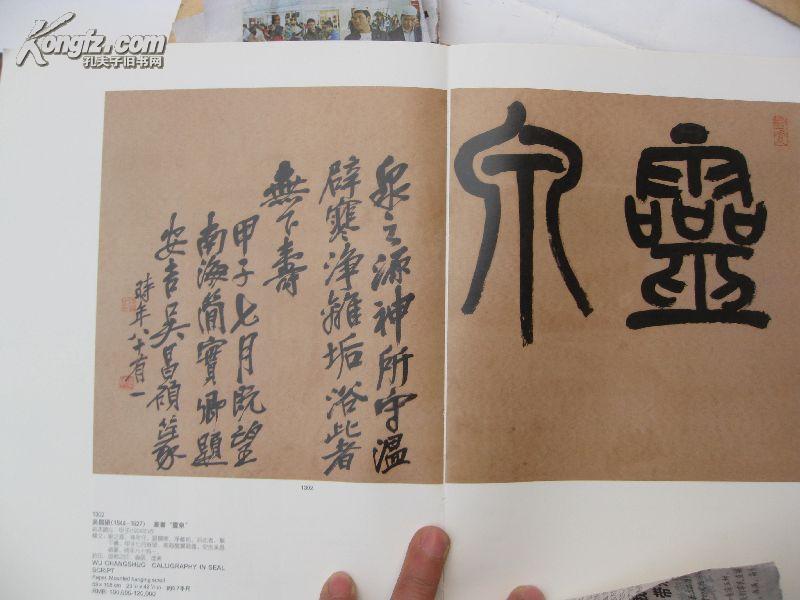 Kongfz.com
孔夫子旧书网
靈泉
泉之源神所守溫
辟寒浄離垢浴此者
無下壽
甲子七月既望
南海簡實卿題
安吉吳昌碩篆
時年八十有一
1302
1302
吳昌碩(1844-1927) 篆書“靈泉”
WU CHANGSHUO CALLIGRAPHY IN SEAL
SCRIPT
Paper, Mounted hanging scroll
RMB: 100,000-120,000